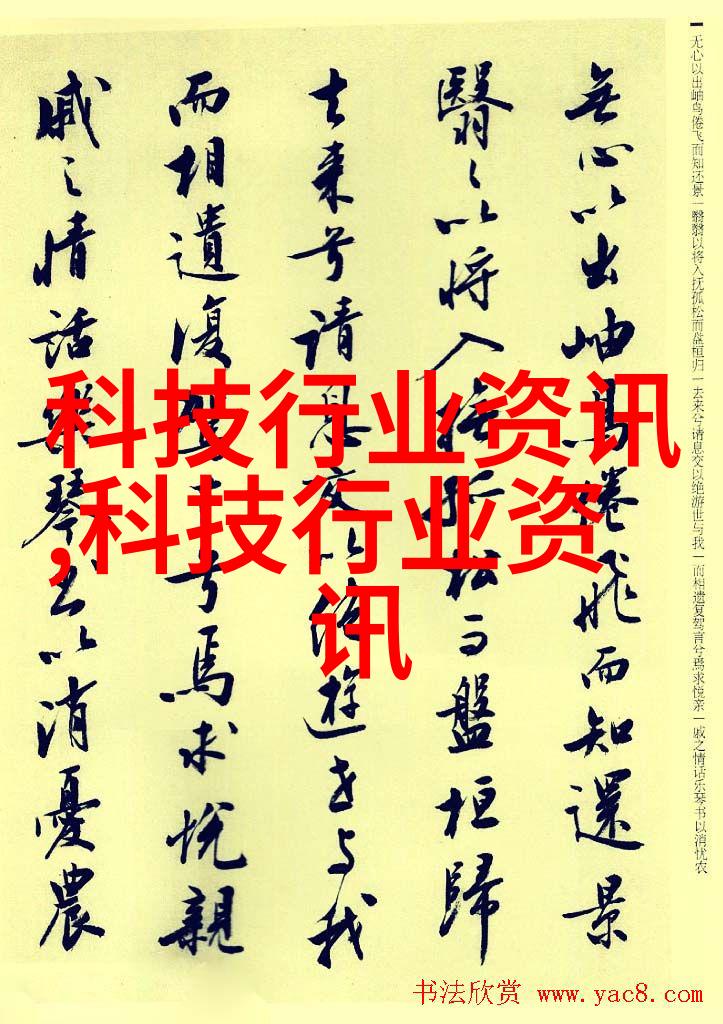 无心以出岫鸟倦飞而知还景一翳翳以将入抚孤松而盘桓归一去来兮请息交以绝游世与我一而相遗复驾言兮焉求悦亲一戚之情话乐琴书以消忧农
無心以出岫鳥倦飛而知還景
翳々以将入撫孤松而盤桓歸
去来兮請息交以絶遊世与我
而相遺復駕言兮焉求悅親
戚々情話樂琴書以消憂農
科技行业资讯
,科技行业资
讯
书法欣赏 www.yac8.com